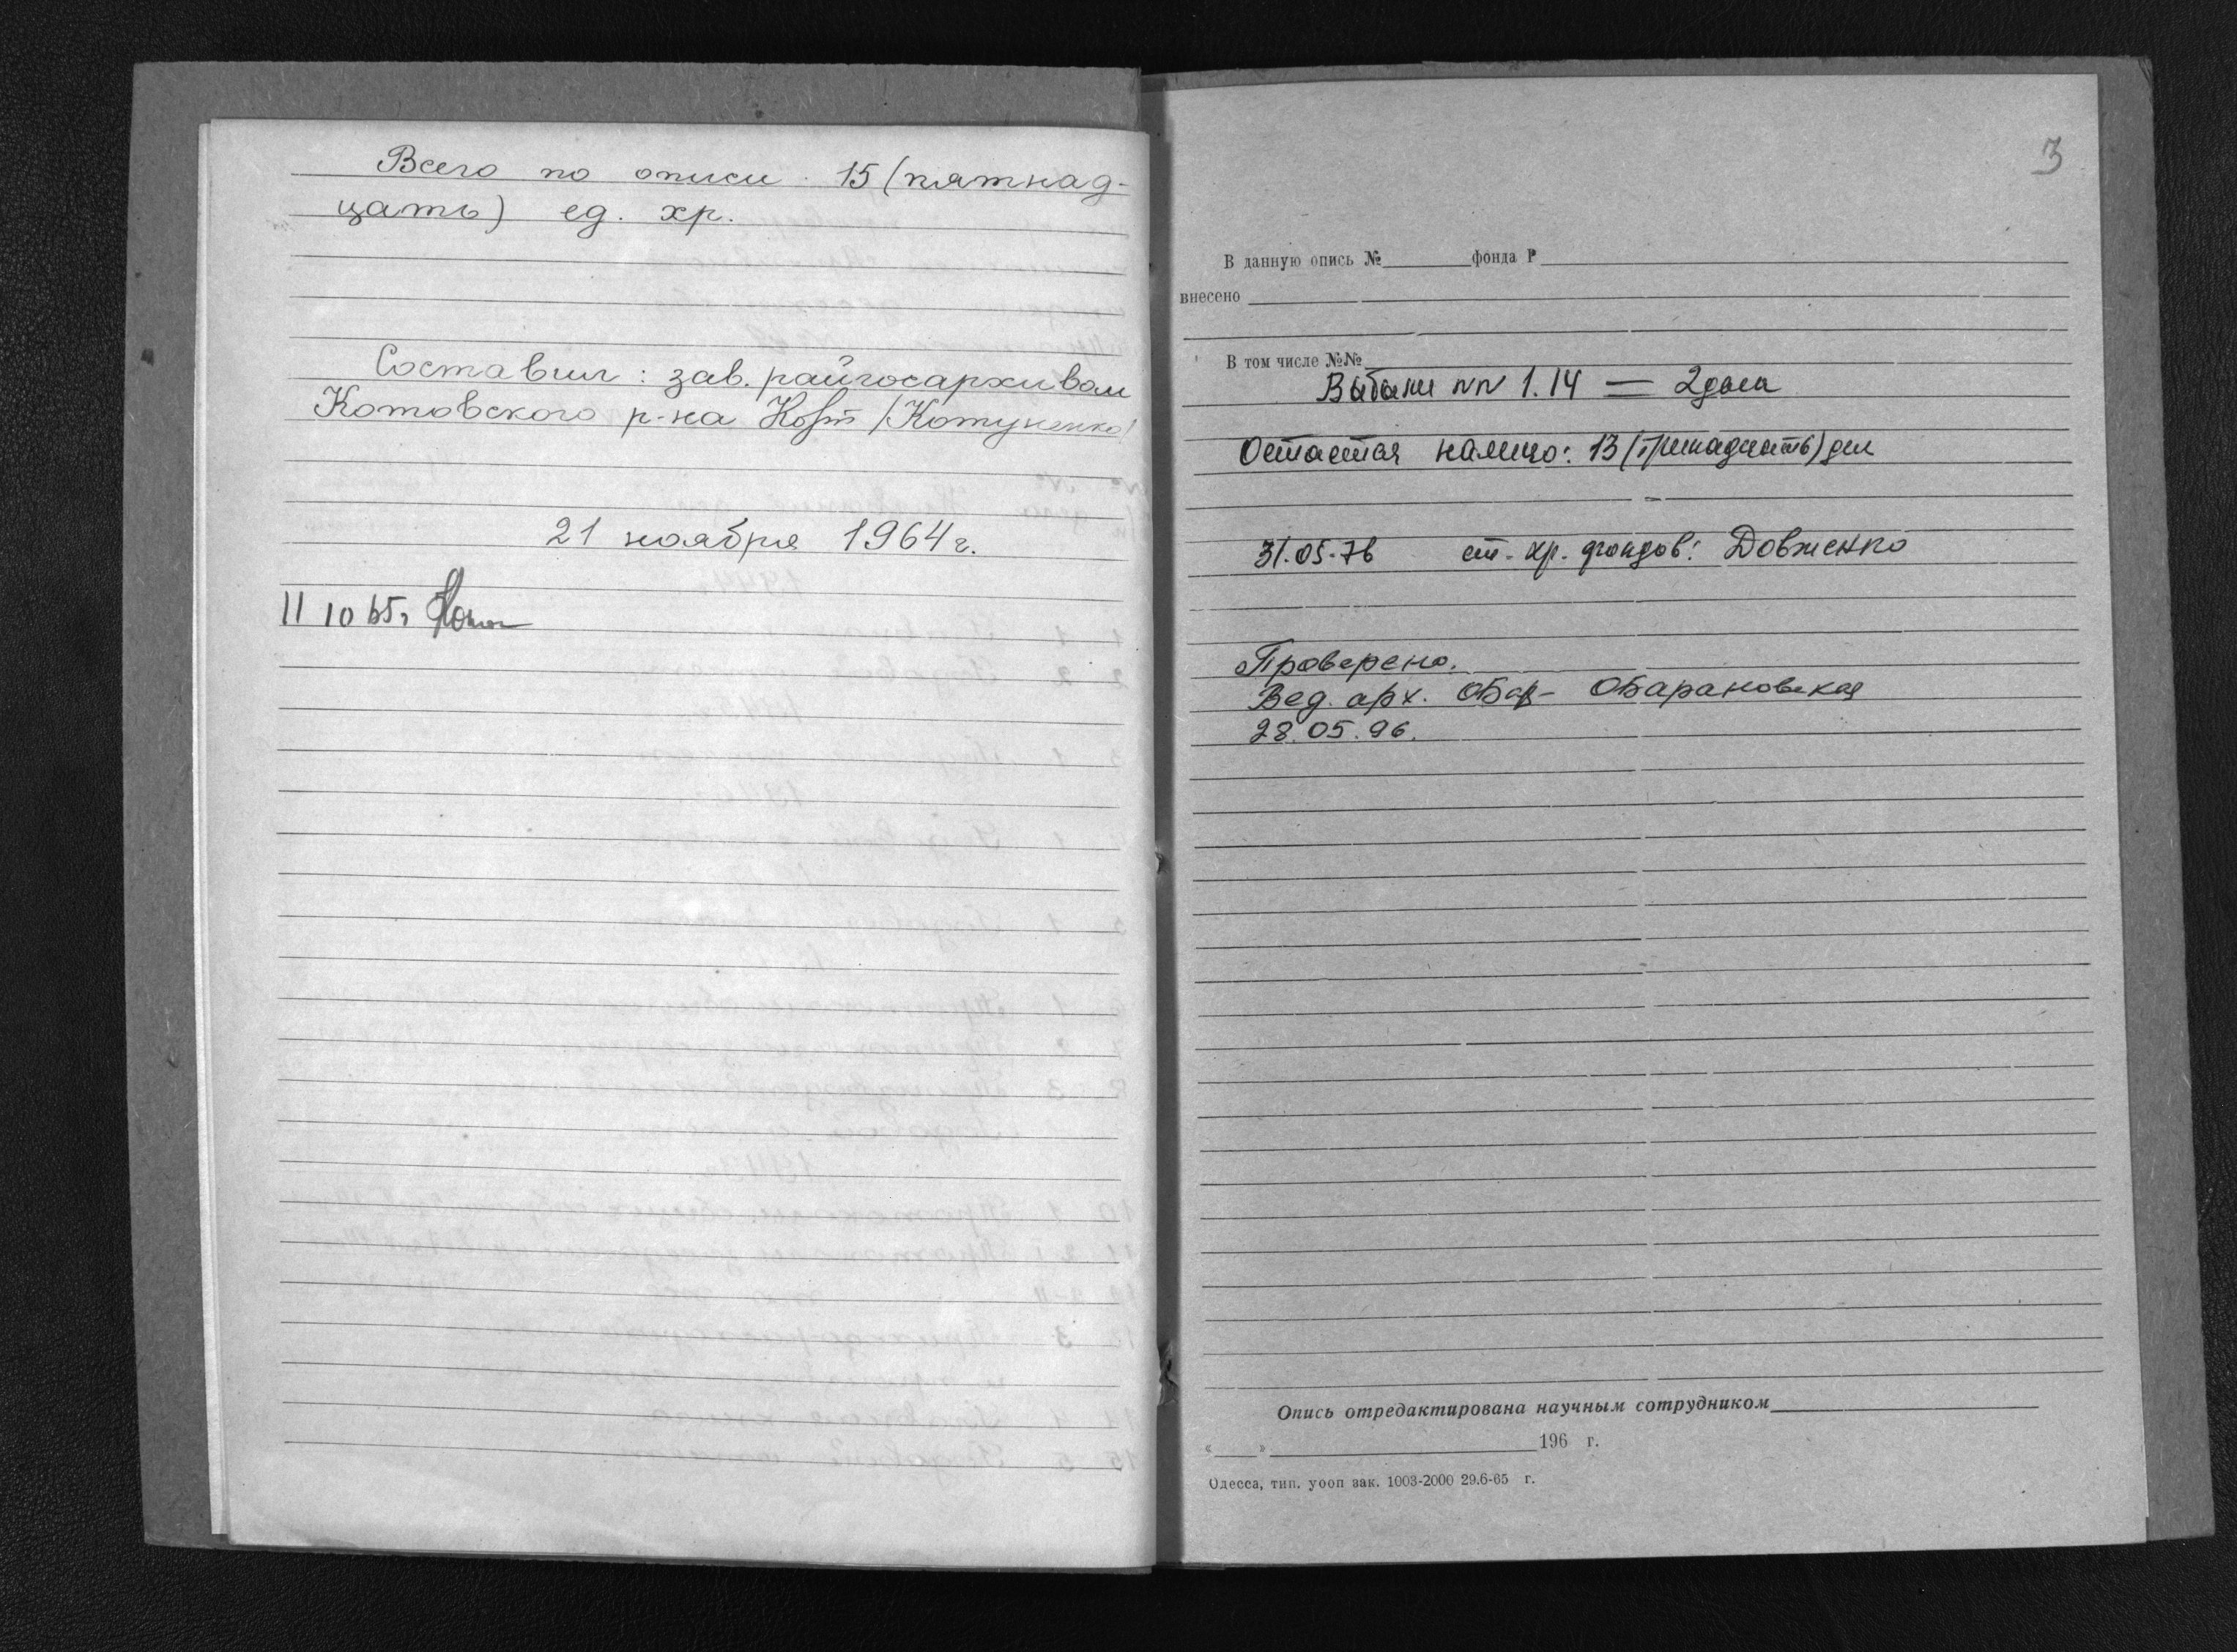 Всего по описи 15 (пятнад-
цать) ед. хр.
Составил: зав. райгосархивом
Котовского р-на /Котуненко/
21 ноября 1964 г.
11 10 65 г
3
В данную опись № фонда Р
внесено
В том числе №№
Выбыли NN 1.14 — 2 дела
Остается налицо: 13 (тринадцать) дел
31.05.76 ст. хр. фондов: Довженко
Проверено.
Вед. арх. ОБар- ОБарановская
28.05.96.
Опись отредактирована научным сотрудником
« » 196 г.
Одесса, тип. уооп зак. 1003-2000 29.6-65 г.